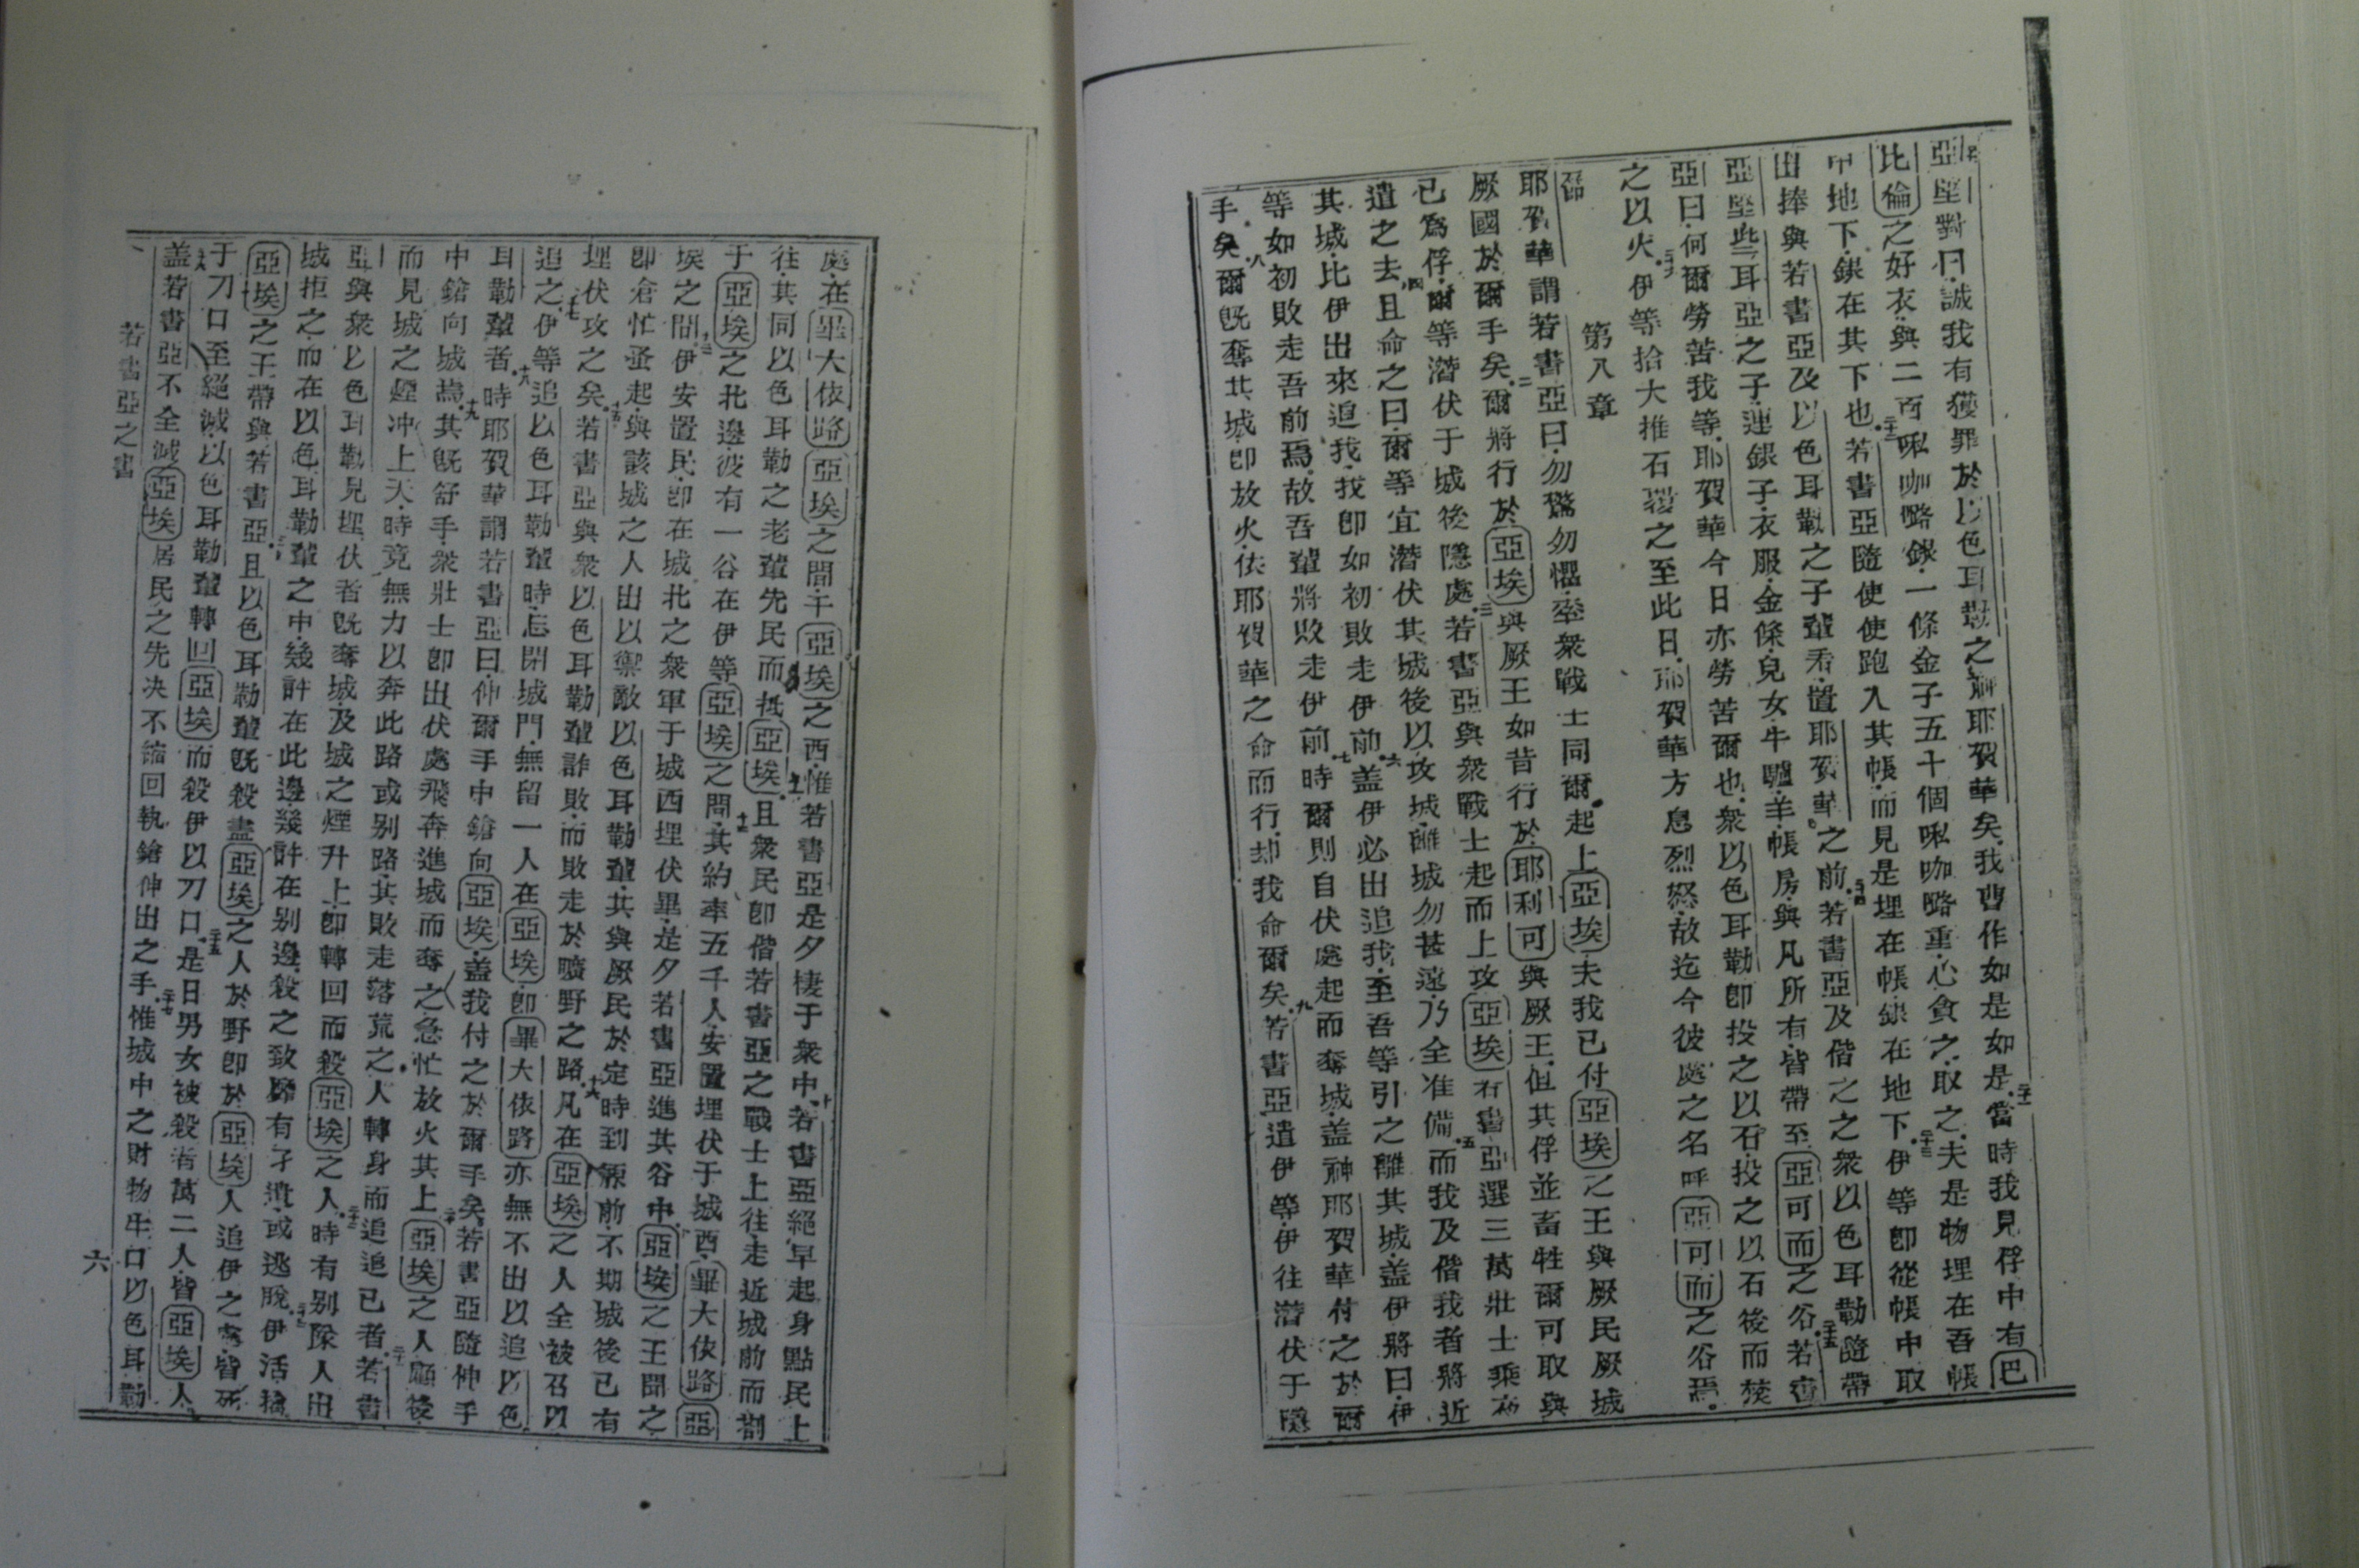 亞堅對曰誠我有獲罪於以色耳勒之神耶賀華矣我曹作如是如是二十一當時我見俘中有巴
比倫之好衣與二百㖠咖嚕銀一條金子五十個㖠咖嚕重心貪之取之夫是物埋在吾帳
中地下銀在其下也二十二若書亞隨使使跑入其帳而見是埋在帳銀在地下二十三伊等卽從帳中取
出捧與若書亞及以色耳勒之子輩看置耶賀華之前二十四若書亞及偕之之衆以色耳勒隨帶
亞堅些耳亞之子運銀子衣服金條兒女牛驢羊帳房與凡所有皆帶至亞可而之谷二十五若書
亞曰何爾勞苦我等耶賀華今日亦勞苦爾也衆以色耳勒卽投之以石投之以石後而焚
之以火二十六伊等拾大堆石覆之至此日耶賀華方息烈怒故迄今彼處之名呼亞可而之谷焉
第八章
耶賀華謂若書亞曰勿驚勿懼率衆戰士同爾起上亞埃夫我已付亞埃之王與厥民厥城
厥國於爾手矣二爾將行於亞埃與厥王如昔行於耶利可與厥王但其俘並畜牲爾可取與
已爲俘爾等潛伏于城後隱處三若書亞與衆戰士起而上攻亞埃若書亞選三萬壯士乘夜
遣之去四且命之曰爾等宜潛伏其城後以攻城離城勿甚遠乃全准備五而我及偕我者將近
其城比伊出來追我我卽如初敗走伊前六盖伊必出追我至吾等引之離其城盖伊將曰伊
等如初敗走吾前焉故吾輩將敗走伊前七時爾則自伏處起而奪城盖神耶賀華付之於爾
手矣八爾旣奪其城卽放火依耶賀華之命而行却我命爾矣九若書亞遣伊等伊往潛伏于隱
處在畢大依路亞埃之間于亞埃之西惟若書亞是夕棲于衆中十若書亞絕早起身點民上
往其同以色耳勒之老輩先民而抵亞埃十一且衆民卽偕若書亞之戰士上往走近城前而劄
于亞埃之北邊彼有一谷在伊等亞埃之間十二其約率五千人安置埋伏于城西畢大依路亞
埃之間十三伊安置民卽在城北之衆軍于城西埋伏畢是夕若書亞進其谷中亞埃之王聞之
卽倉忙蚤起與該城之人出以禦敵以色耳勒輩其與厥民於定時到原前不期城後已有
埋伏攻之矣十五若書亞與衆以色耳勒輩詐敗而敗走於曠野之路十六凡在亞埃之人全被召以
追之十七伊等追以色耳勒輩時忘閉城門無留一人在亞埃卽畢大依路亦無不出以追以色
耳勒輩者十八時耶賀華謂若書亞曰伸爾手中鎗向亞埃盖我付之於爾手矣若書亞隨伸手
中鎗向城焉十九其旣舒手衆壯士卽出伏處飛奔進城而奪之急忙放火其上二十亞埃之人顧後
而見城之煙冲上天時竟無力以奔此路或別路其敗走落荒之人轉身而追追己者二十一若書
亞與衆以色耳勒見埋伏者旣奪城及城之煙升上卽轉回而殺亞埃之人二十二時有別隊人出
城拒之而在以色耳勒輩之中幾許在此邊幾許在別邊殺之致靡有孑遺或逃脫二十三伊活擒
亞埃之王帶與若書亞二十四且以色耳勒輩旣殺盡亞埃之人於野卽於亞埃人追伊之處皆死
于刀口至絕滅以色耳勒輩轉回亞埃而殺伊以刀口二十五是日男女被殺者萬二人皆亞埃人
二十六盖若書亞不全滅亞埃居民之先決不縮回執鎗伸出之手二十七惟城中之財物牛口以色耳勒
若書亞之書
六